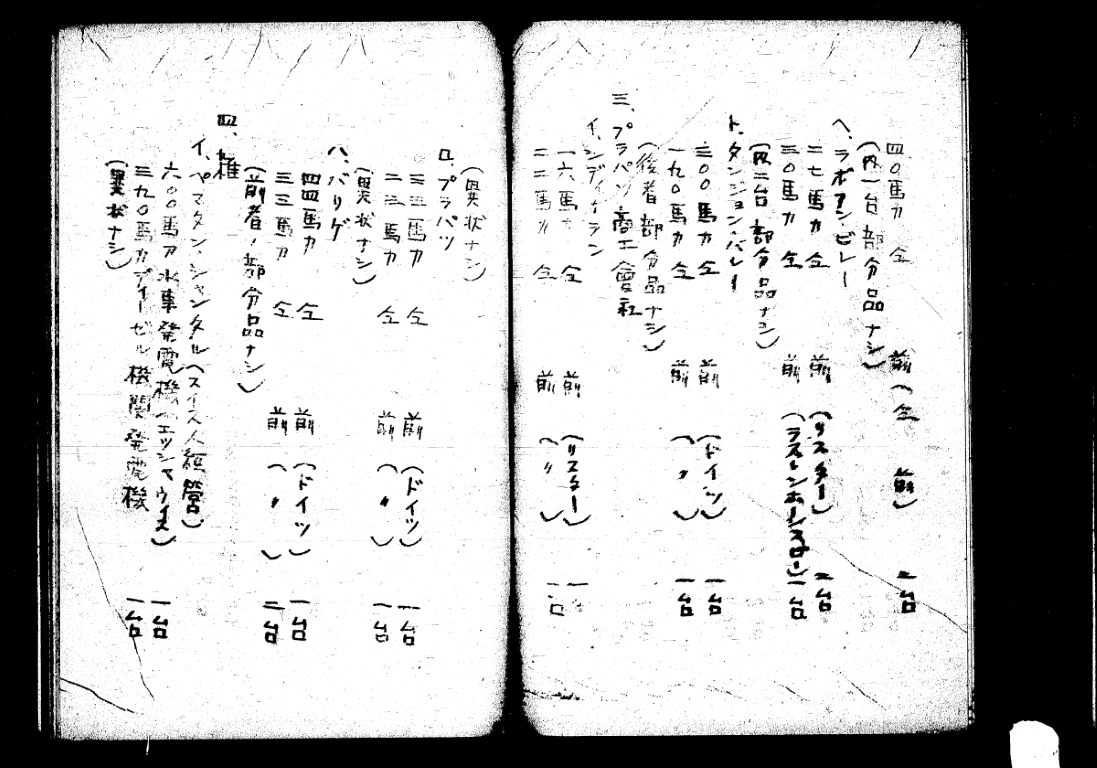 四〇馬力 仝 前(仝 前) 二台
(内一台部分品ナシ)
ヘ、ラボアン・ビレー
二七馬力 仝 前(リスター) 二台
三〇馬力 仝 前(ラストンホーンスロー)一台
(内二台部分品ナシ)
ト、タンジョン・バレー
三〇〇馬力 仝 前(ドイツ) 一台
一九〇馬力 仝 前(〃) 一台
(後者部分品ナシ)
三、プラパツ商工會社
イ、シディカラン
一六馬力 仝 前(リスター) 一台
二二馬力 仝 前(〃) 一台
(異状ナシ)
ロ、プラパツ
三三馬力 仝 前(ドイツ) 一台
二二馬力 仝 前(〃) 一台
(異状ナシ)
ハ、バリゲ
四四馬力 仝 前(ドイツ) 一台
三三馬力 仝 前(〃) 二台
(前者ノ部分品ナシ)
四、権
イ、ペマタン・シャンタル(スイス人經營)
六〇〇馬力水車発電機(エッシャウイス) 一台
三九〇馬力ディーゼル機関発電機 一台
(異状ナシ)